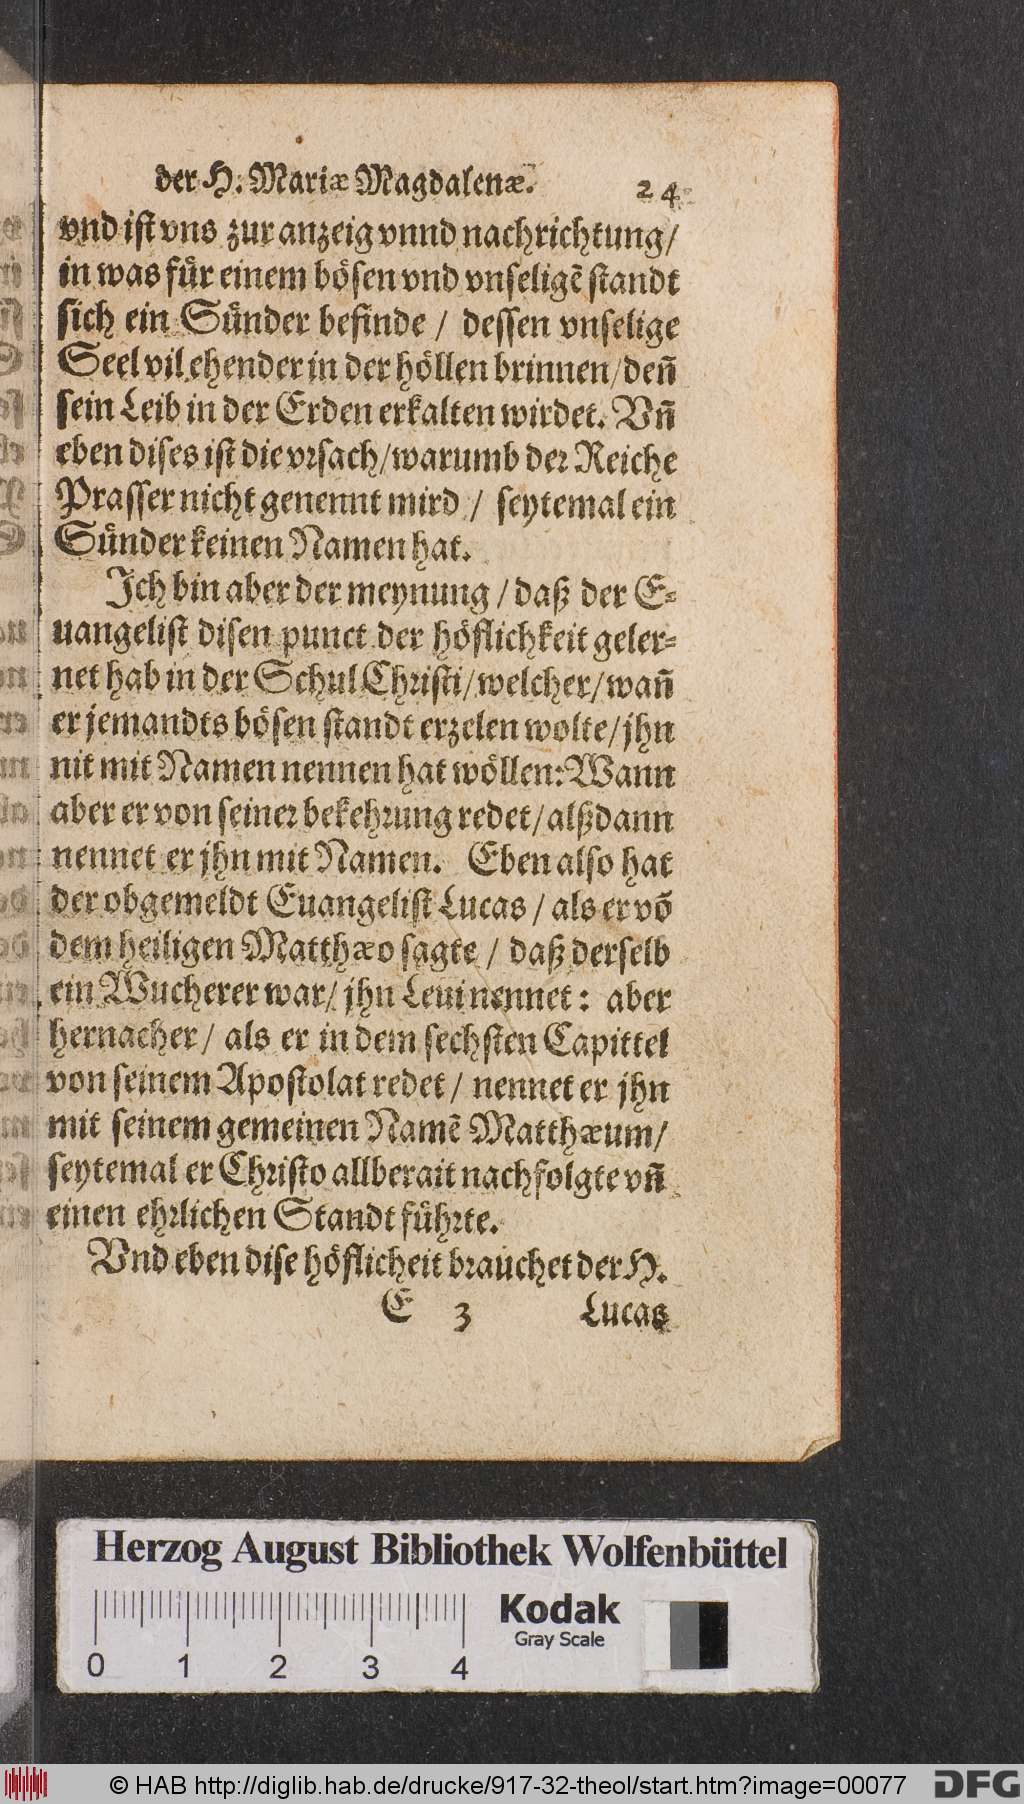 der H. Mariæ Magdalenæ. 24
vnd ist vns zur anzeig vnnd nachrichtung/
in was für einem bösen vnd vnseligẽ standt
sich ein Sünder befinde / dessen vnselige
Seel vil ehender in der höllen brinnen/deñ
sein Leib in der Erden erkalten wirdet. Vñ
eben dises ist die vrsach/warumb der Reiche
Prasser nicht genennt mird / seytemal ein
Sünder keinen Namen hat.
Ich bin aber der meynung / daß der E-
uangelist disen punct der höflichkeit geler-
net hab in der Schul Christi/welcher/wañ
er jemandts bösen standt erzelen wolte/jhn
nit mit Namen nennen hat wöllen: Wann
aber er von seiner bekehrung redet/alßdann
nennet er jhn mit Namen. Eben also hat
der obgemeldt Euangelist Lucas / als er võ
dem heiligen Matthæo sagte / daß derselb
ein Wucherer war/ jhn Leui nennet: aber
hernacher/ als er in dem sechsten Capittel
von seinem Apostolat redet / nennet er jhn
mit seinem gemeinen Namẽ Matthæum/
seytemal er Christo allberait nachfolgte vñ
einen ehrlichen Standt führte.
Vnd eben dise höflicheit brauchet der H.
E 3 Lucas
Herzog August Bibliothek Wolfenbüttel
Kodak
Gray Scale
0 1 2 3 4
© HAB http://diglib.hab.de/drucke/917-32-theol/start.htm?image=00077 DFG